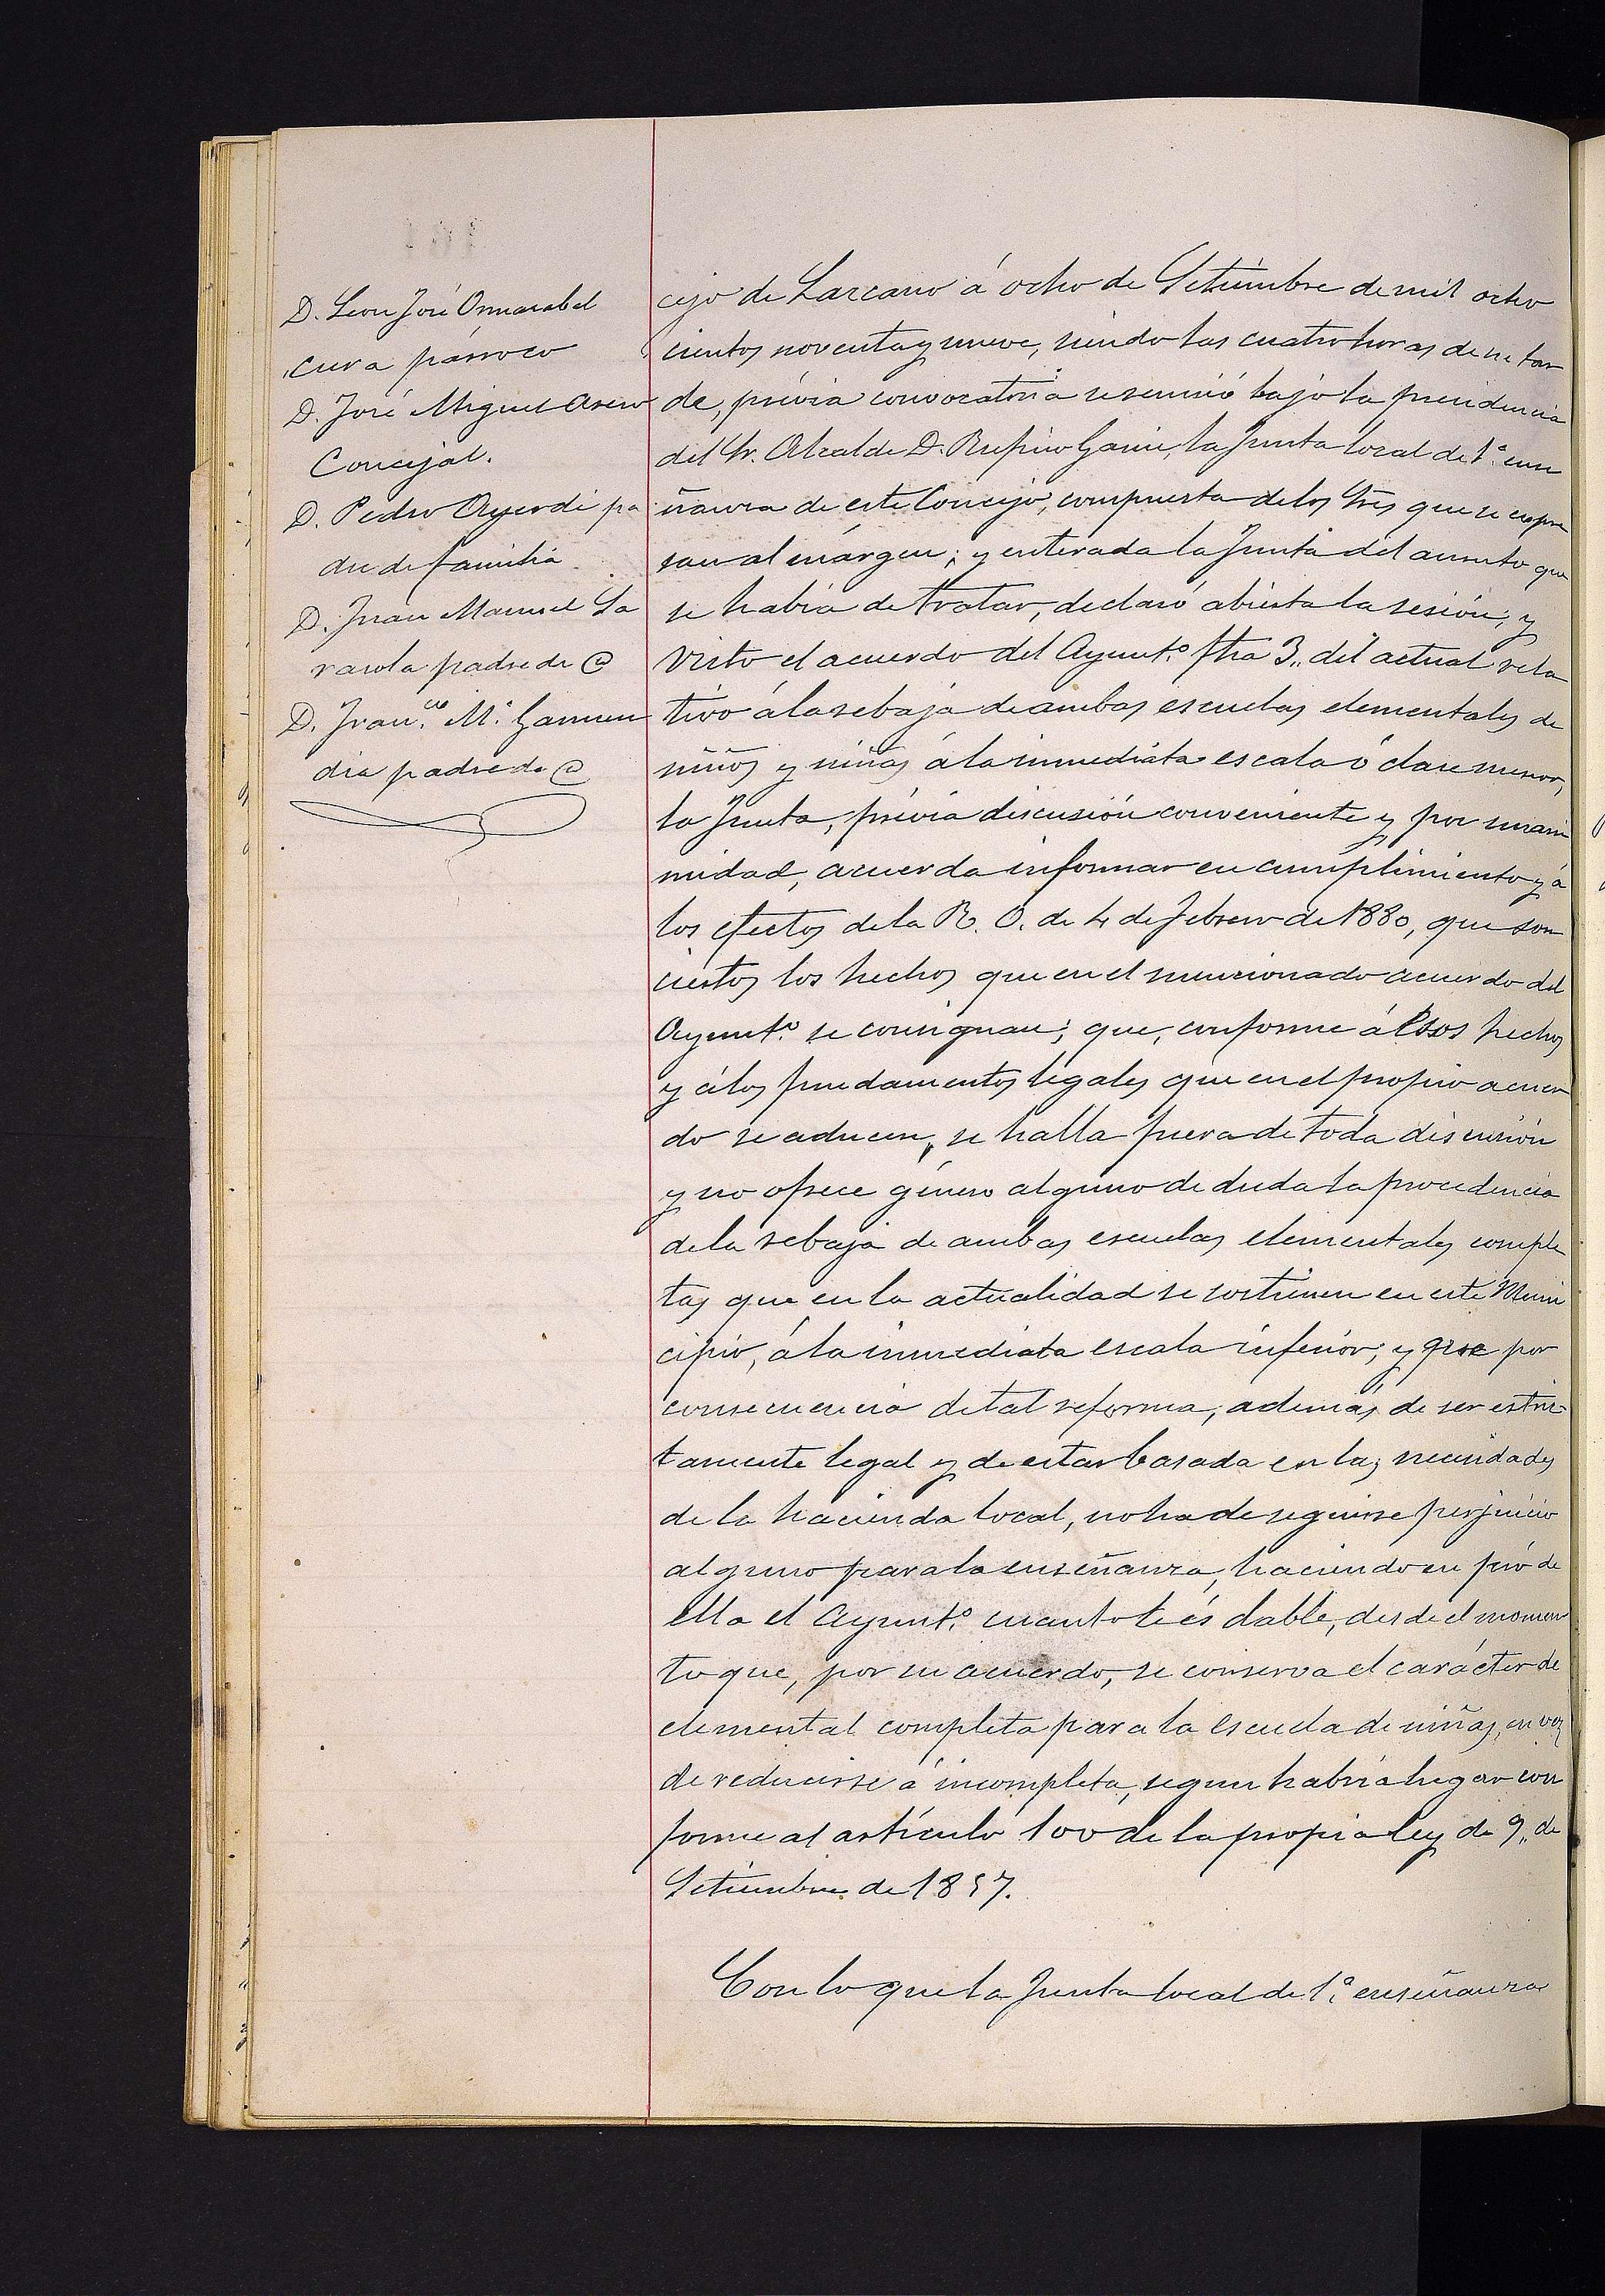 D. Leon José Ormazabal
cura párroco
D. José Miguel Aseno
Concejal.
D. Pedro Ayerdi pa
dre de familia
D. Juan Manuel La
rasola padre de @
D. Fran.co M.ª Garmen
dia padre de @
cejo de Lazcano á ocho de Setiembre de mil ocho
cientos noventa y nueve, siendo las cuatro horas de su tar
de, prévia convocatoria se reunió bajo la presidencia
del Sr. Alcalde D. Rufino the Junta local de 1.ª ense
ñanza de este Concejo, compuesta de los Sres que se expre
san al márgen; y enterada la Junta del asunto que
se habia de tratar, declaró abierta la sesión; y
visto el acuerdo del Ayunt.º fha 3,, del actual rela
tivo á la rebaja de ambas escuelas elementales de
niños y niñas á la inmediata escala ó clase menor,
la Junta, prévia discusión conveniente y por unani
midad, acuerda informar en cumplimiento y á
los efectos de la R. O. de 4 de Febrero de 1880, que son
ciertos los hechos que en el mencionado acuerdo del
Ayunt.º se consignan; que, conforme á esos hechos
y á los fundamentos legales que en el propio acuer
do se aducen, se halla fuera de toda discusión
y no ofrece género alguno de duda la procedencia
de la rebaja de ambas escuelas elementales comple
tas que en la actualidad se sostienen en este Muni
cipio, á la inmediata escala inferior; y que por
consecuencia de tal reforma, además de ser estric
tamente legal y de estar basada en las necesidades
de la hacienda local, no ha de seguirse perjuicio
alguno para la enseñanza, haciendo en pró de
ella el Ayunt.º cuanto le és dable, desde el momen
to que, por su acuerdo, se conserva el carácter de
elemental completa para la escuela de niñas, en vez
de reducirse á incompleta, segun habria lugar con
forme al artículo 100 de la propia ley de 9,, de
Setiembre de 1857.
Con lo que la Junta local de 1.ª enseñanza